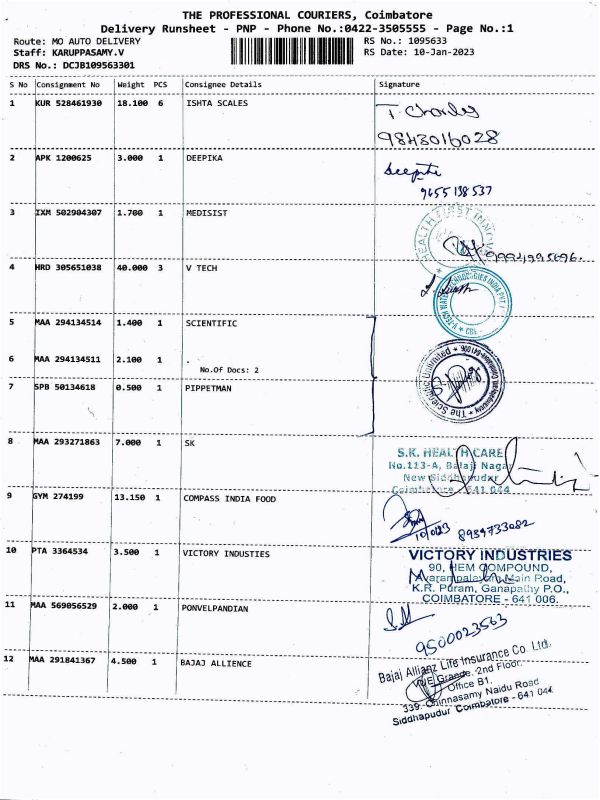 THE PROFESSIONAL COURIERS, Coimbatore
Delivery Runsheet - PNP - Phone No.:0422-3505555 - Page No.:1
Route: MO AUTO DELIVERY
RS No.: 1095633
Staff: KARUPPASAMY.V
RS Date: 10-Jan-2023
DRS No.: DCJB109563301
S No Consignment No Weight PCS Consignee Details Signature
1 KUR 528461930 18.100 6 ISHTA SCALES
T. Charles
9843016028
2 APK 1200625 3.000 1 DEEPIKA
Deepti
9655198537
3 IXM 502904307 1.700 1 MEDISIST
HEALTH FIRST INNOV
4 HRD 305651038 40.000 3 V TECH
V-TECH WATER TECHNOLOGIES INDIA PVT * CBE -
5 MAA 294134514 1.400 1 SCIENTIFIC
6 MAA 294134511 2.100 1 .
No.Of Docs: 2
* The Scientific Unlimited * Coimbatore-641006
7 SPB 50134618 0.500 1 PIPPETMAN
8 MAA 293271863 7.000 1 SK
S.K. HEALTH CARE
No.113-A, Balaji Nagar
New Siddhapudur
Coimbatore - 641 044
9 GYM 274199 13.150 1 COMPASS INDIA FOOD
10/01/23 8939733082
10 PTA 3364534 3.500 1 VICTORY INDUSTIES
VICTORY INDUSTRIES
90, HEM COMPOUND,
Avarampalayam Main Road,
K.R. Puram, Ganapathy P.O.,
COIMBATORE - 641 006.
11 MAA 569056529 2.000 1 PONVELPANDIAN
9500023563
12 MAA 291841367 4.500 1 BAJAJ ALLIENCE
Bajaj Allianz Life Insurance Co. Ltd.
VUE Grande, 2nd Floor,
Office B1,
339, Chinnasamy Naidu Road
Siddhapudur Coimbatore - 641 044